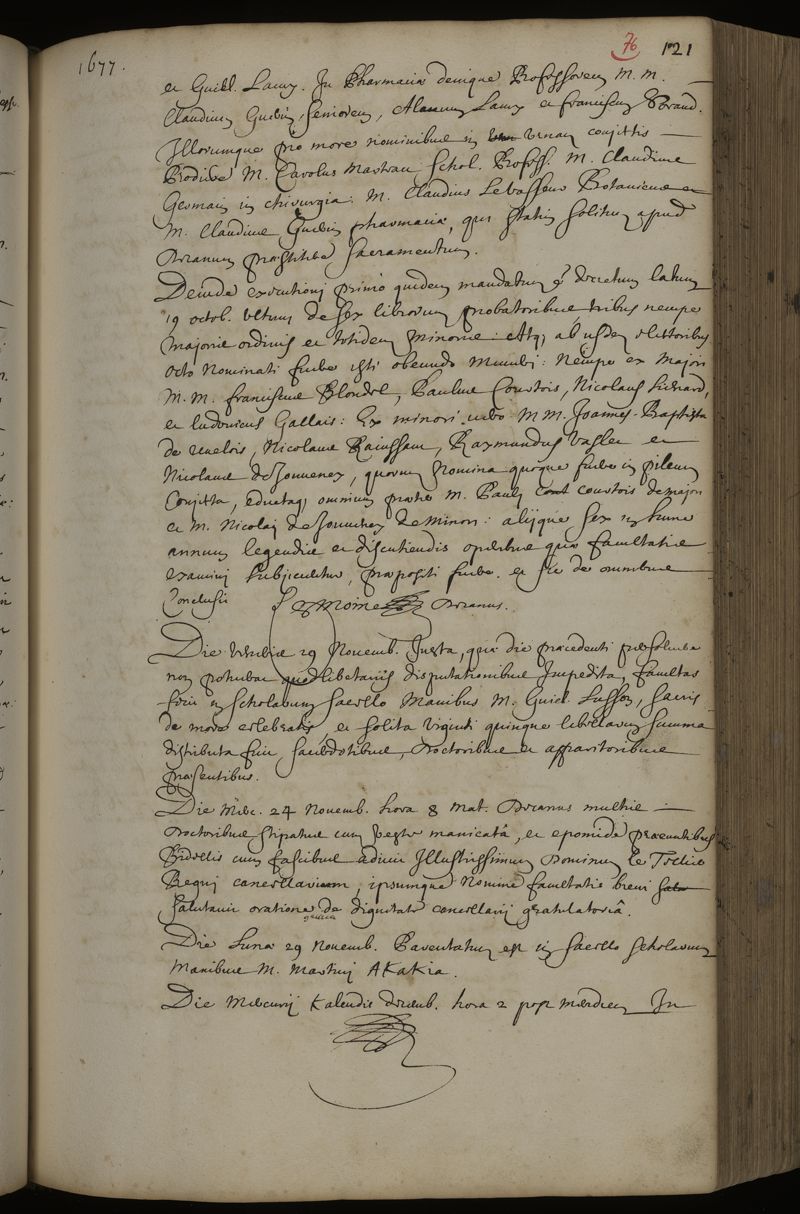 1677.
76 121
et Guill. Lamy. In Pharmacia denique Professorem M. M.
Claudium Guerin, seniorem, Alanum Lamy et franciscum Morand.
Illorumque pro more nominibus in urnam conjectis
Prodiere M. Carolus Marteau Schol. Profess. M. Claudius
Germain in chirurgia: M. Claudius Levasseur Botanicus et
M. Claudius Guerin pharmaciæ, qui statim solitum apud
Decanum præstitere sacramentum.
Deinde executioni primo quidem mandatum decretum latum
19 octob. ultim de sex librorum probatoribus, tribus nempe
majoris ordinis et totidem minoris: Atq; ab iisdem electoribus
octo nominati fuere isti obeundo muneri: Nempe ex majori
M. M. franciscus Blondel, Paulus Courtois, Nicolaus Lienard,
et ludovicus Gallais: Ex minori vero M M. Joannes-Baptista
de , Nicolaus Rainssant, Raymundus et
Nicolaus de Jouvenez, quorum Nomina quoque fuere in pileum
Conjecta, eductaq; omnium præter M. Pauli courtois de majori
et M. Nicolai de Jouvenez de minori: aliique sex in hunc
annum legendis et discutiendis operibus quæ facultatis
examini subjicientur, præpositi fuere. et sic de omnibus
Conclusit Le Moine Decanus.
Die 29 Novemb. Juxta, quia die præcedenti persolvere
non poterat quodlibetariis disputationibus Impedita, facultas
fecit in Scholarum Sacello Manibus M. Guill. Lusson, sacris
de more celebratis, et solita viginti quinque librarum summa
distributa fuit sacerdotibus, Doctoribus et apparitoribus
præsentibus.
Die Merc. 24 Novemb. hora 8 mat. Decanus multis
Doctoribus stipatus cum veste manicatâ, et epomide præeuntibus
Bidellis cum fascibus adiit Illustrissimum Dominum le Tellier
Regni cancellarium, ipsumque Nomine facultatis brevi
salutavit oratione de dignitate cancellarii gratulatoriâ.
Die Lunæ 29 Novemb. Parentatum est in sacello Scholarum
Manibus M. Martini Akakia.
Die Mercurii Kalendis decemb. hora 2 post meridiem In